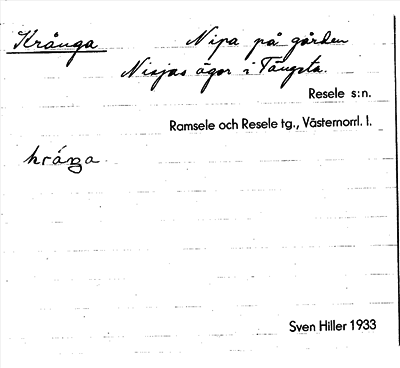 Krånga Nipa på gården
Nisjas ägor i Tängsta.
Resele s:n.
Ramsele och Resele tg., Västernorrl. l.
Sven Hiller 1933